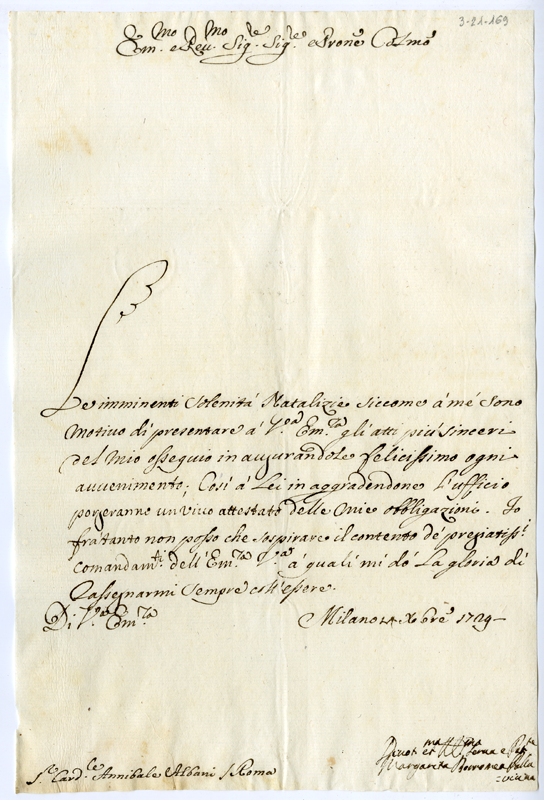 3-21-169
Em.mo e Rev.mo Sig.re Sig.re e Prone Col.mo
Le imminenti Solenità Natalizie siccome à mè sono
motivo di presentare à V.ra Em.za gli atti più sinceri
del mio ossequio in augurandole felicissimo ogni
avvenimento; Così à Lei in aggradendone l'ufficio
porgeranno un vivo attestato delle mie obbligazioni. Io
frà tanto non posso che sospirare il contento de' pregiatiss.i
comandam.ti dell'Em.za V.ra à quali mi dò la gloria di
rassegnarmi sempre coll'essere.
Di V.ra Em.za Milano Xbre 1729
Devot.ma et Serua
Margarita
S.r Card.le Annibale Albani / Roma